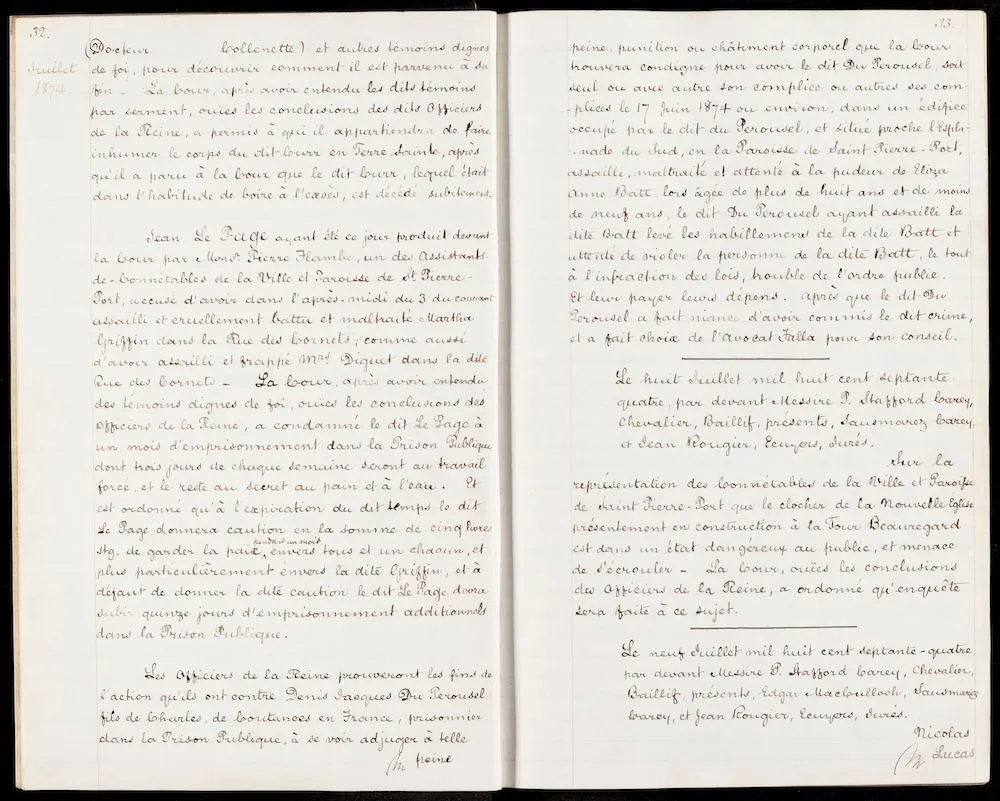 32.
Juillet
1874
(Docteur Collenette) et autres témoins dignes
de foi, pour découvrir comment il est parvenu à sa
fin - La Cour, après avoir entendu les dits témoins
par serment, ouïes les conclusions des dits Officiers
de la Reine, a permis à qui il appartiendra de faire
inhumer le corps du dit Curr en Terre-Sainte, après
qu'il a paru à la Cour que le dit Curr, lequel était
dans l'habitude de boire à l'excès, est décédé subitement.
Jean Le Page ayant été ce jour produit devant
la Cour par Monsr. Pierre Flambe, un des Assistants-
de-Connétables de la Ville et Paroisse de St Pierre-
Port, accusé d'avoir dans l'après-midi du 3 du courant
assailli et cruellement battu et maltraité Martha
Griffin dans la Rue des Cornets; comme aussi
d'avoir assailli et frappé Mrs. Diguet dans la dite
Rue des Cornets - La Cour, après avoir entendu
des témoins dignes de foi, ouïes les conclusions des
Officiers de la Reine, a condamné le dit Le Page à
un mois d'emprisonnement dans la Prison Publique
dont trois jours de chaque semaine seront au travail
forcé, et le reste au secret au pain et à l'eau. Et
est ordonné qu'à l'expiration du dit temps le dit
Le Page donnera caution en la somme de cinq livres
stg. de garder la paix, pendant un mois, envers tous et un chacun, et
plus particulièrement envers la dite Griffin, et à
défaut de donner la dite caution le dit Le Page devra
subir quinze jours d'emprisonnement additionnels
dans la Prison Publique.
Les Officiers de la Reine prouveront les fins de
l'action qu'ils ont contre Denis Jacques Du Perousel
fils de Charles, de Coutances en France, prisonnier
dans la Prison Publique, à se voir adjuger à telle
peine
33.
peine, punition ou châtiment corporel que la Cour
trouvera condigne pour avoir le dit Du Perousel, soit
seul ou avec autre son complice ou autres ses com-
-plices le 17 Juin 1874 ou environ, dans un édifice
occupé par le dit du Perousel, et situé proche l'Espla-
-nade du Sud, en la Paroisse de Saint-Pierre-Port,
assailli, maltraité et attenté à la pudeur de Eliza
Anne Batt, lors âgée de plus de huit ans et de moins
de neuf ans, le dit Du Perousel ayant assailli la
dite Batt levé les habillemens de la dite Batt et
attenté de violer la personne de la dite Batt, le tout
à l'infraction des lois, trouble de l'ordre public.
Et leur payer leurs dépens. Après que le dit Du
Perousel a fait niance d'avoir commis le dit crime,
et a fait choix de l'Avocat Falla pour son conseil.
Le huit Juillet mil huit cent septante
quatre, par devant Messire P. Stafford Carey,
Chevalier, Baillif, présents, Sausmarez Carey,
et Jean Rougier, Ecuyers, Jurés.
Sur la
représentation des Connétables de la Ville et Paroisse
de Saint Pierre-Port que le clocher de la Nouvelle Eglise
présentement en construction à la Tour Beauregard
est dans un état dangéreux au public, et menace
de s'écrouler - La Cour, ouïes les conclusions
des Officiers de la Reine, a ordonné qu'enquête
sera faite à ce sujet.
Le neuf Juillet mil huit cent septante-quatre,
par devant Messire P. Stafford Carey, Chevalier,
Baillif, présents, Edgar MacCulloch, Sausmarez
Carey, et Jean Rougier, Ecuyers, Jurés.
Nicolas
Lucas